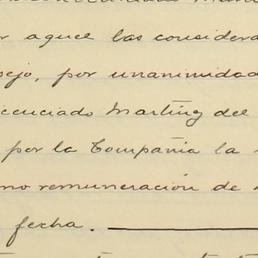 r aquel las considera
sejo, por unanimidad
icenciado Martínez del
por la Compañía la
mo remuneración de
fecha.